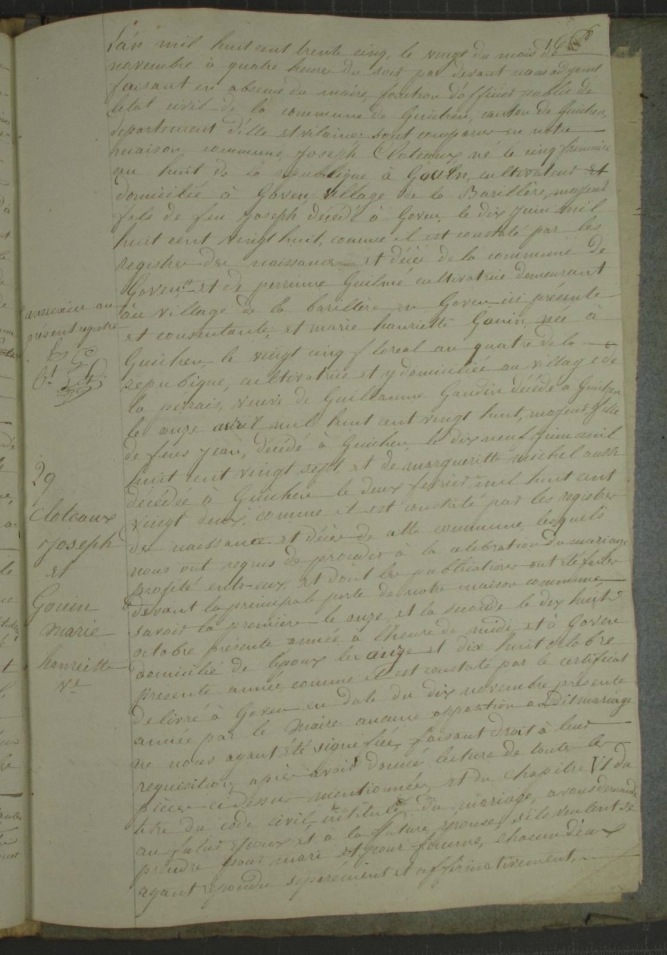 L'an mil huit cent trente cinq, le vingt du mois de
novembre à quatre heure du soir par devant nous adjoint
faisant en absence du maire, fonction d'officier public de
l'état civil de la commune de Guichen, canton de Guichen
departement d'ille et vilaine sont comparus en notre
maison commune Joseph Cloteaux né le cinq
an huit de la republique à Goven, cultivateur et
domicilié à Goven village de la Barillère, majeur
fils de feu Joseph décédé à Goven le dix juin mil
huit cent vingt huit, comme il est constaté par les
registre de naissance et décès de la commune de
Goven et de perrinne Guilmé cultivatrice demeurant
au village de la barillère en Goven ici présente
et consentante, et marie henriette Gouin née à
Guichen le vingt cinq floreal an quatre de la
republique, cultivatrice et y domiciliée au village de
la veuve de Guillaume Gaudin décédé à Guichen
le onze avril mil huit cent vingt huit, majeure fille
de feus jean, décédé à Guichen le dix neuf juin mil
huit cent vingt sept et de marguerite michel aussi
décédée à Guichen le deux fevrier mil huit cent
vingt deux, comme il est constaté par les registre
de naissance et décès de cette commune, lesquels
nous ont requis de proceder à la celebration du mariage
projeté entr'eux, et dont les publications ont été faites
devant la principale porte de notre maison commune
savoir la première le onze, et la seconde le dix huit
octobre présente année à l'heure de midi, et à Goven
domicilié de l'époux les onze et dix huit octobre
présente année comme il est constaté par le certificat
delivré à Goven en date du dix novembre présente
année par le Maire aucune opposition audit mariage
ne nous ayant été signifiée, faisant droit à leur
requisition, après avoir donné lecture de toute le
pièces ci dessus mentionnées, et du chapitre VI du
titre du code civil, intitulé du mariage, avons demandé
au futur epoux et a la future epouse, s'ils veulent se
prendre pour mari et pour femme, chacun d'eux
ayant repondu separement et affirmativement
au
présent registre
29
Cloteaux
Joseph
et
Gouin
Marie
henriette
Ve